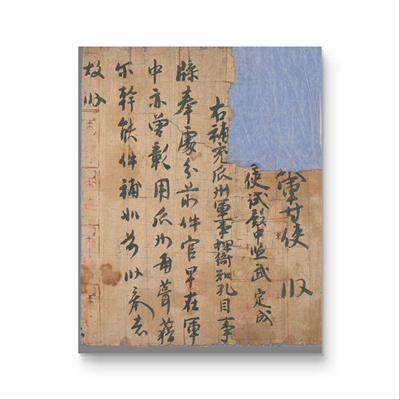 等使 牒
使試殿中監武定成
右補充瓜州軍事押衙知孔目事
牒奉處分前件官早在軍
中亦曾彰用瓜州再葺藉
尔幹能件補如前牒舉者
故牒